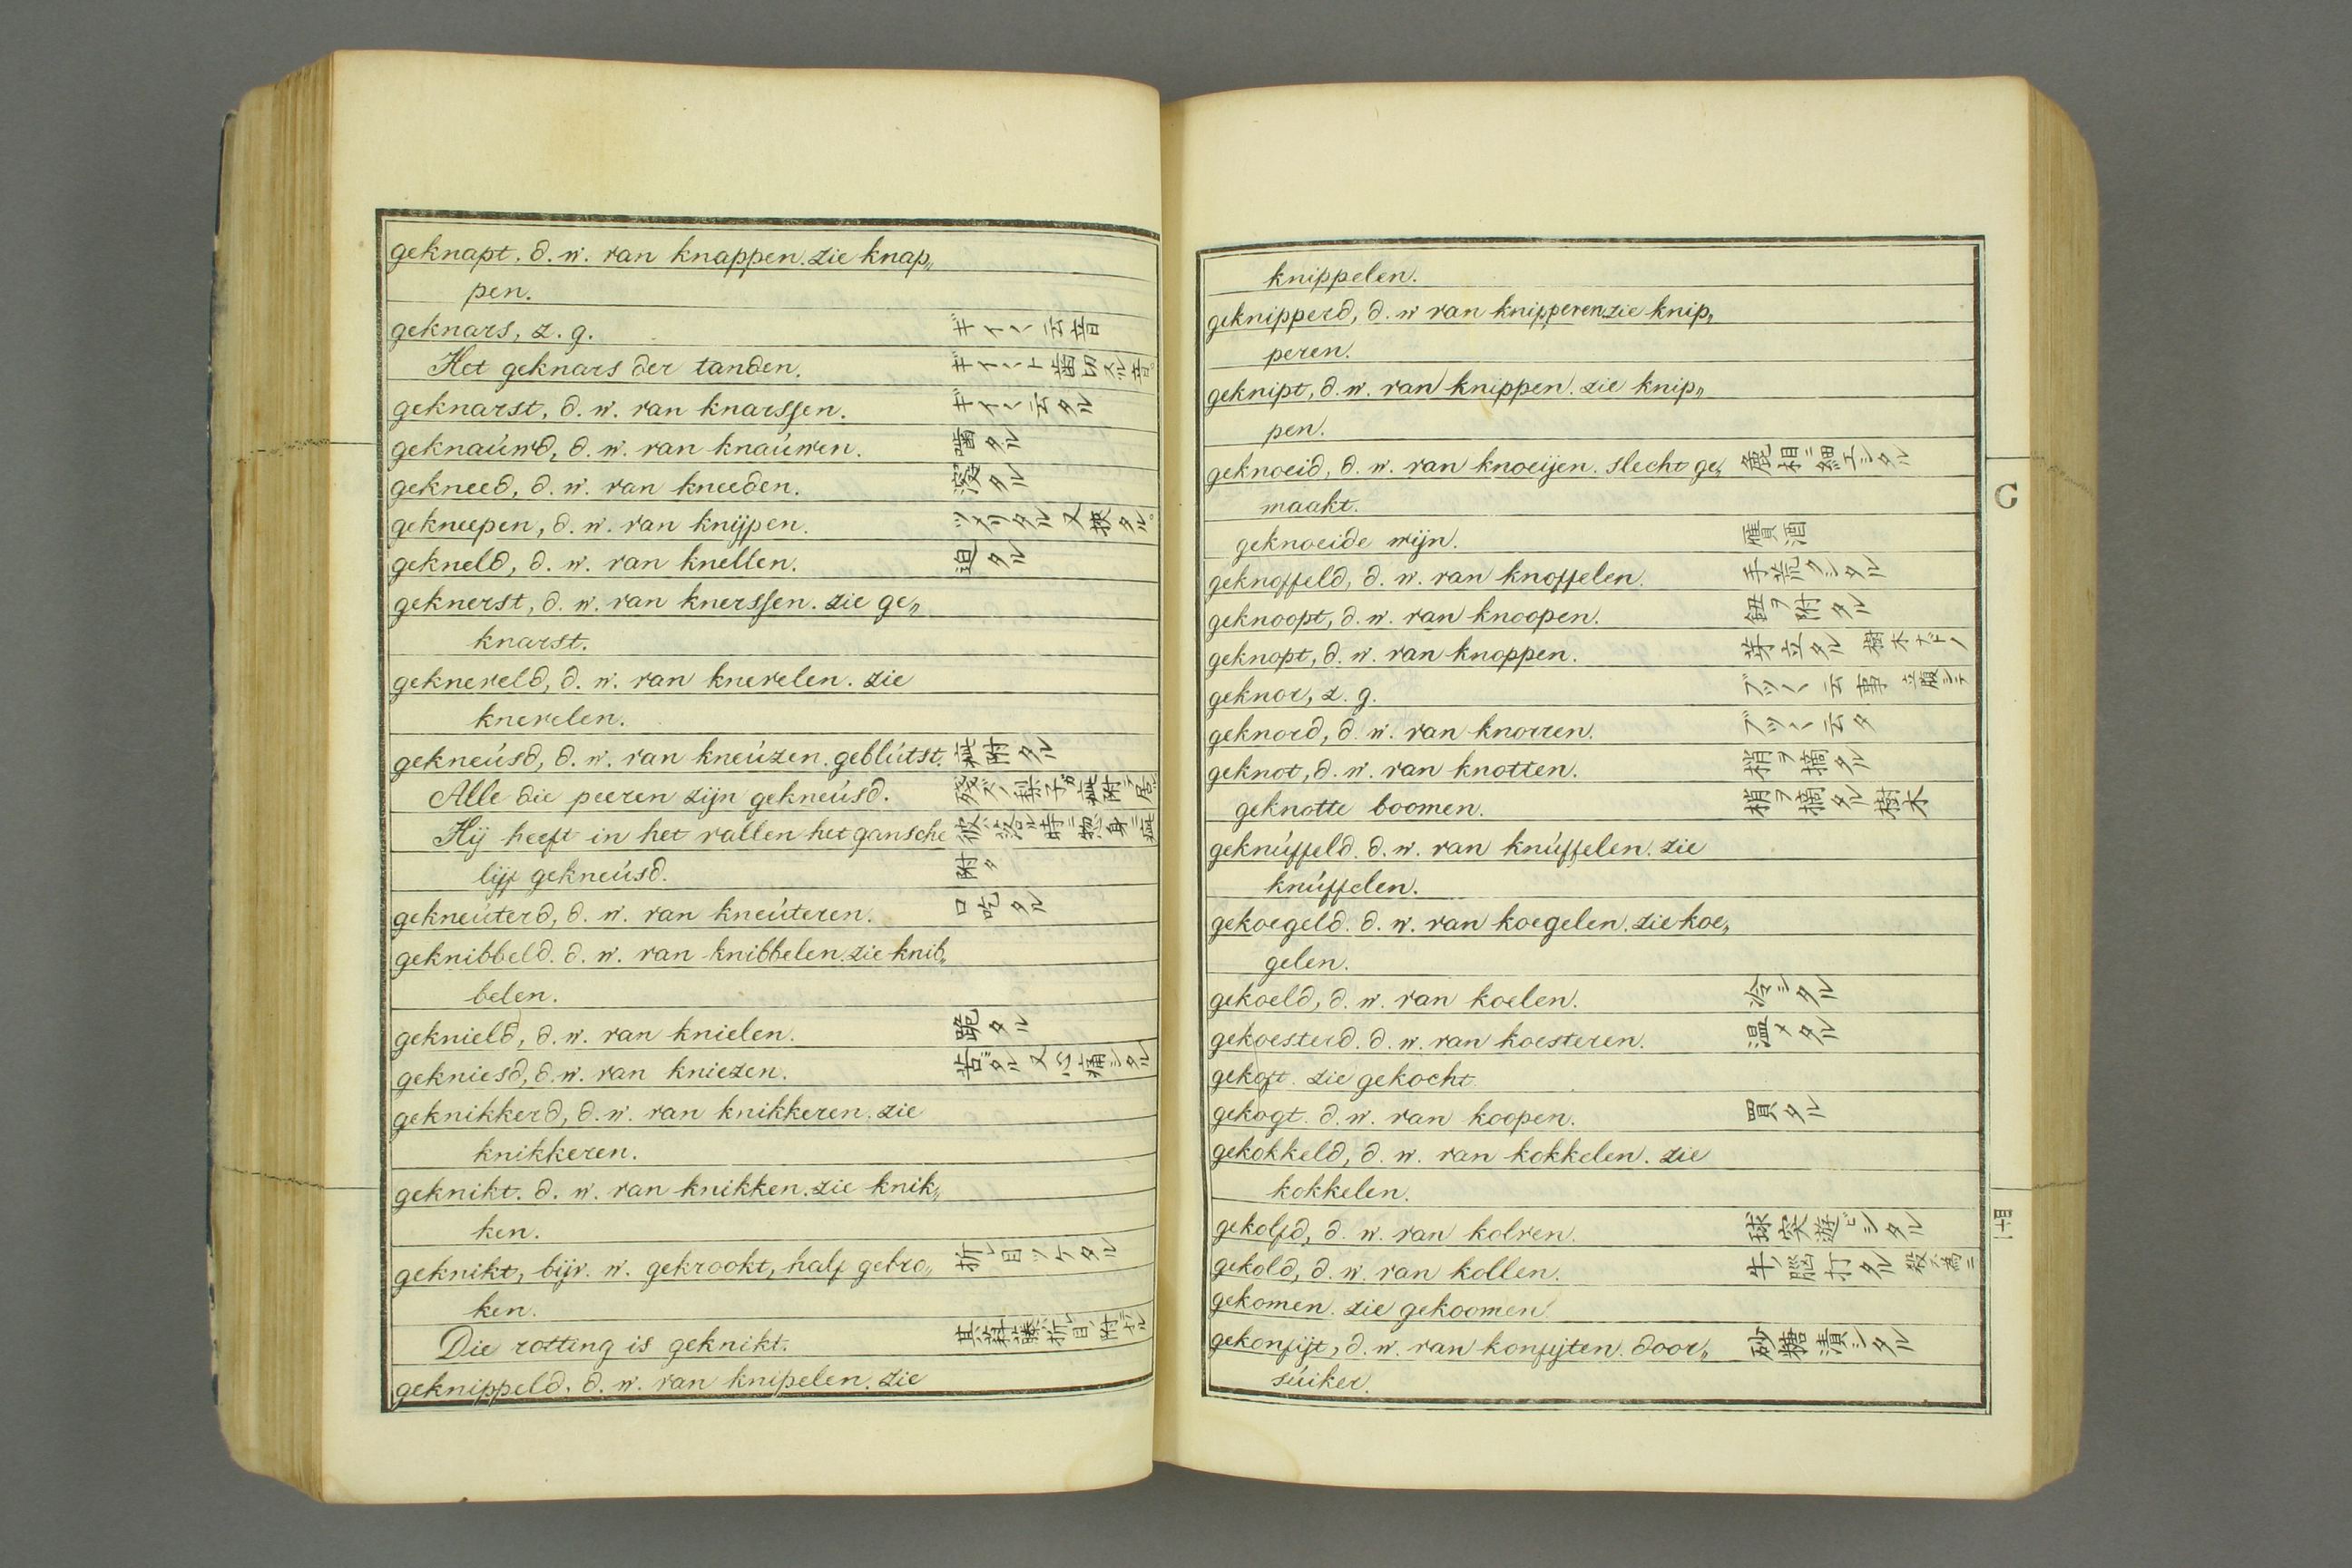 geknapt. d. w. van knappen. zie knap„
pen.
geknars, z. g. ギイ〱云音
Het geknars der tanden. ギイ〱ト歯切スル音。
geknarst, d. w. van knarssen. ギイ〱云タル
geknaúwd, d. w. van knaúwen. 噛タル
gekneed, d. w. van kneeden. タル
gekneepen, d. w. van knijpen. ツメリタル又挾タル。
gekneld, d. w. van knellen. 迫タル
geknerst, d. w. van knerssen. zie ge„
knarst.
gekneveld, d. w. van knevelen. zie
knevelen.
gekneúsd, d. w. van kneúzen. geblútst. 疵附タル
Alle die peeren zijn gekneúsd. 殘ズノ梨子ガ疵附テ居
Hij heeft in het vallen het gansche 彼ハ落ル時ニ惣身ニ疵
lijf gekneúsd. 附タ
gekneúterd, d. w. van kneúteren. 口吃タル
geknibbeld. d. w. van knibbelen. zie knib„
belen.
geknield, d. w. van knielen. 跪タル
gekniesd, d. w. van kniezen. 苦ダル又心痛シタル
geknikkerd, d. w. van knikkeren. zie
knikkeren.
geknikt. d. w. van knikken. zie knik„
ken.
geknikt, bijv. w. gekrookt, half gebro„ 折レ目ツケタル
ken.
Die rotting is geknikt. 其藤ハ折レ目ノ附
geknippeld. d. w. van knipelen. zie
knippelen.
geknipperd, d. w van knipperen zie knip„
peren.
geknipt, d. w. van knippen. zie knip„
pen.
geknoeid, d. w. van knoeijen. slecht ge„ 麁相ニ細工シタル
maakt.
geknoeide wijn. 贋酒
geknoffeld, d. w. van knoffelen. 手荒クシタル
geknoopt, d. w. van knoopen. 鈕ヲ附タル
geknopt, d. w. van knoppen. 芽立タル 樹木ナドノ
geknor, z. g. ブツ〱云事 立腹シテ
geknord, d. w. van knorren. ブツ〱云タ
geknot, d. w. van knotten. 梢ヲ摘タル
geknotte boomen. 梢ヲ摘タル樹木
geknúffeld. d. w. van knúffelen. zie
knúffelen.
gekoegeld. d. w. van koegelen. zie koe„
gelen.
gekoeld, d. w. van koelen. 冷シタル
gekoesterd. d. w. van koesteren. 温メタル
gekoft. zie gekocht.
gekogt. d. w. van koopen. 買タル
gekokkeld, d. w. van kokkelen. zie
kokkelen.
gekolfd, d. w. van kolven. 球突遊ビシタル
gekold, d. w. van kollen. 牛ノ脳打タル 殺ス為ニ
gekomen. zie gekoomen
gekonfijt, d. w. van konfijten. door„ 砂糖漬シタル
súiker.
G